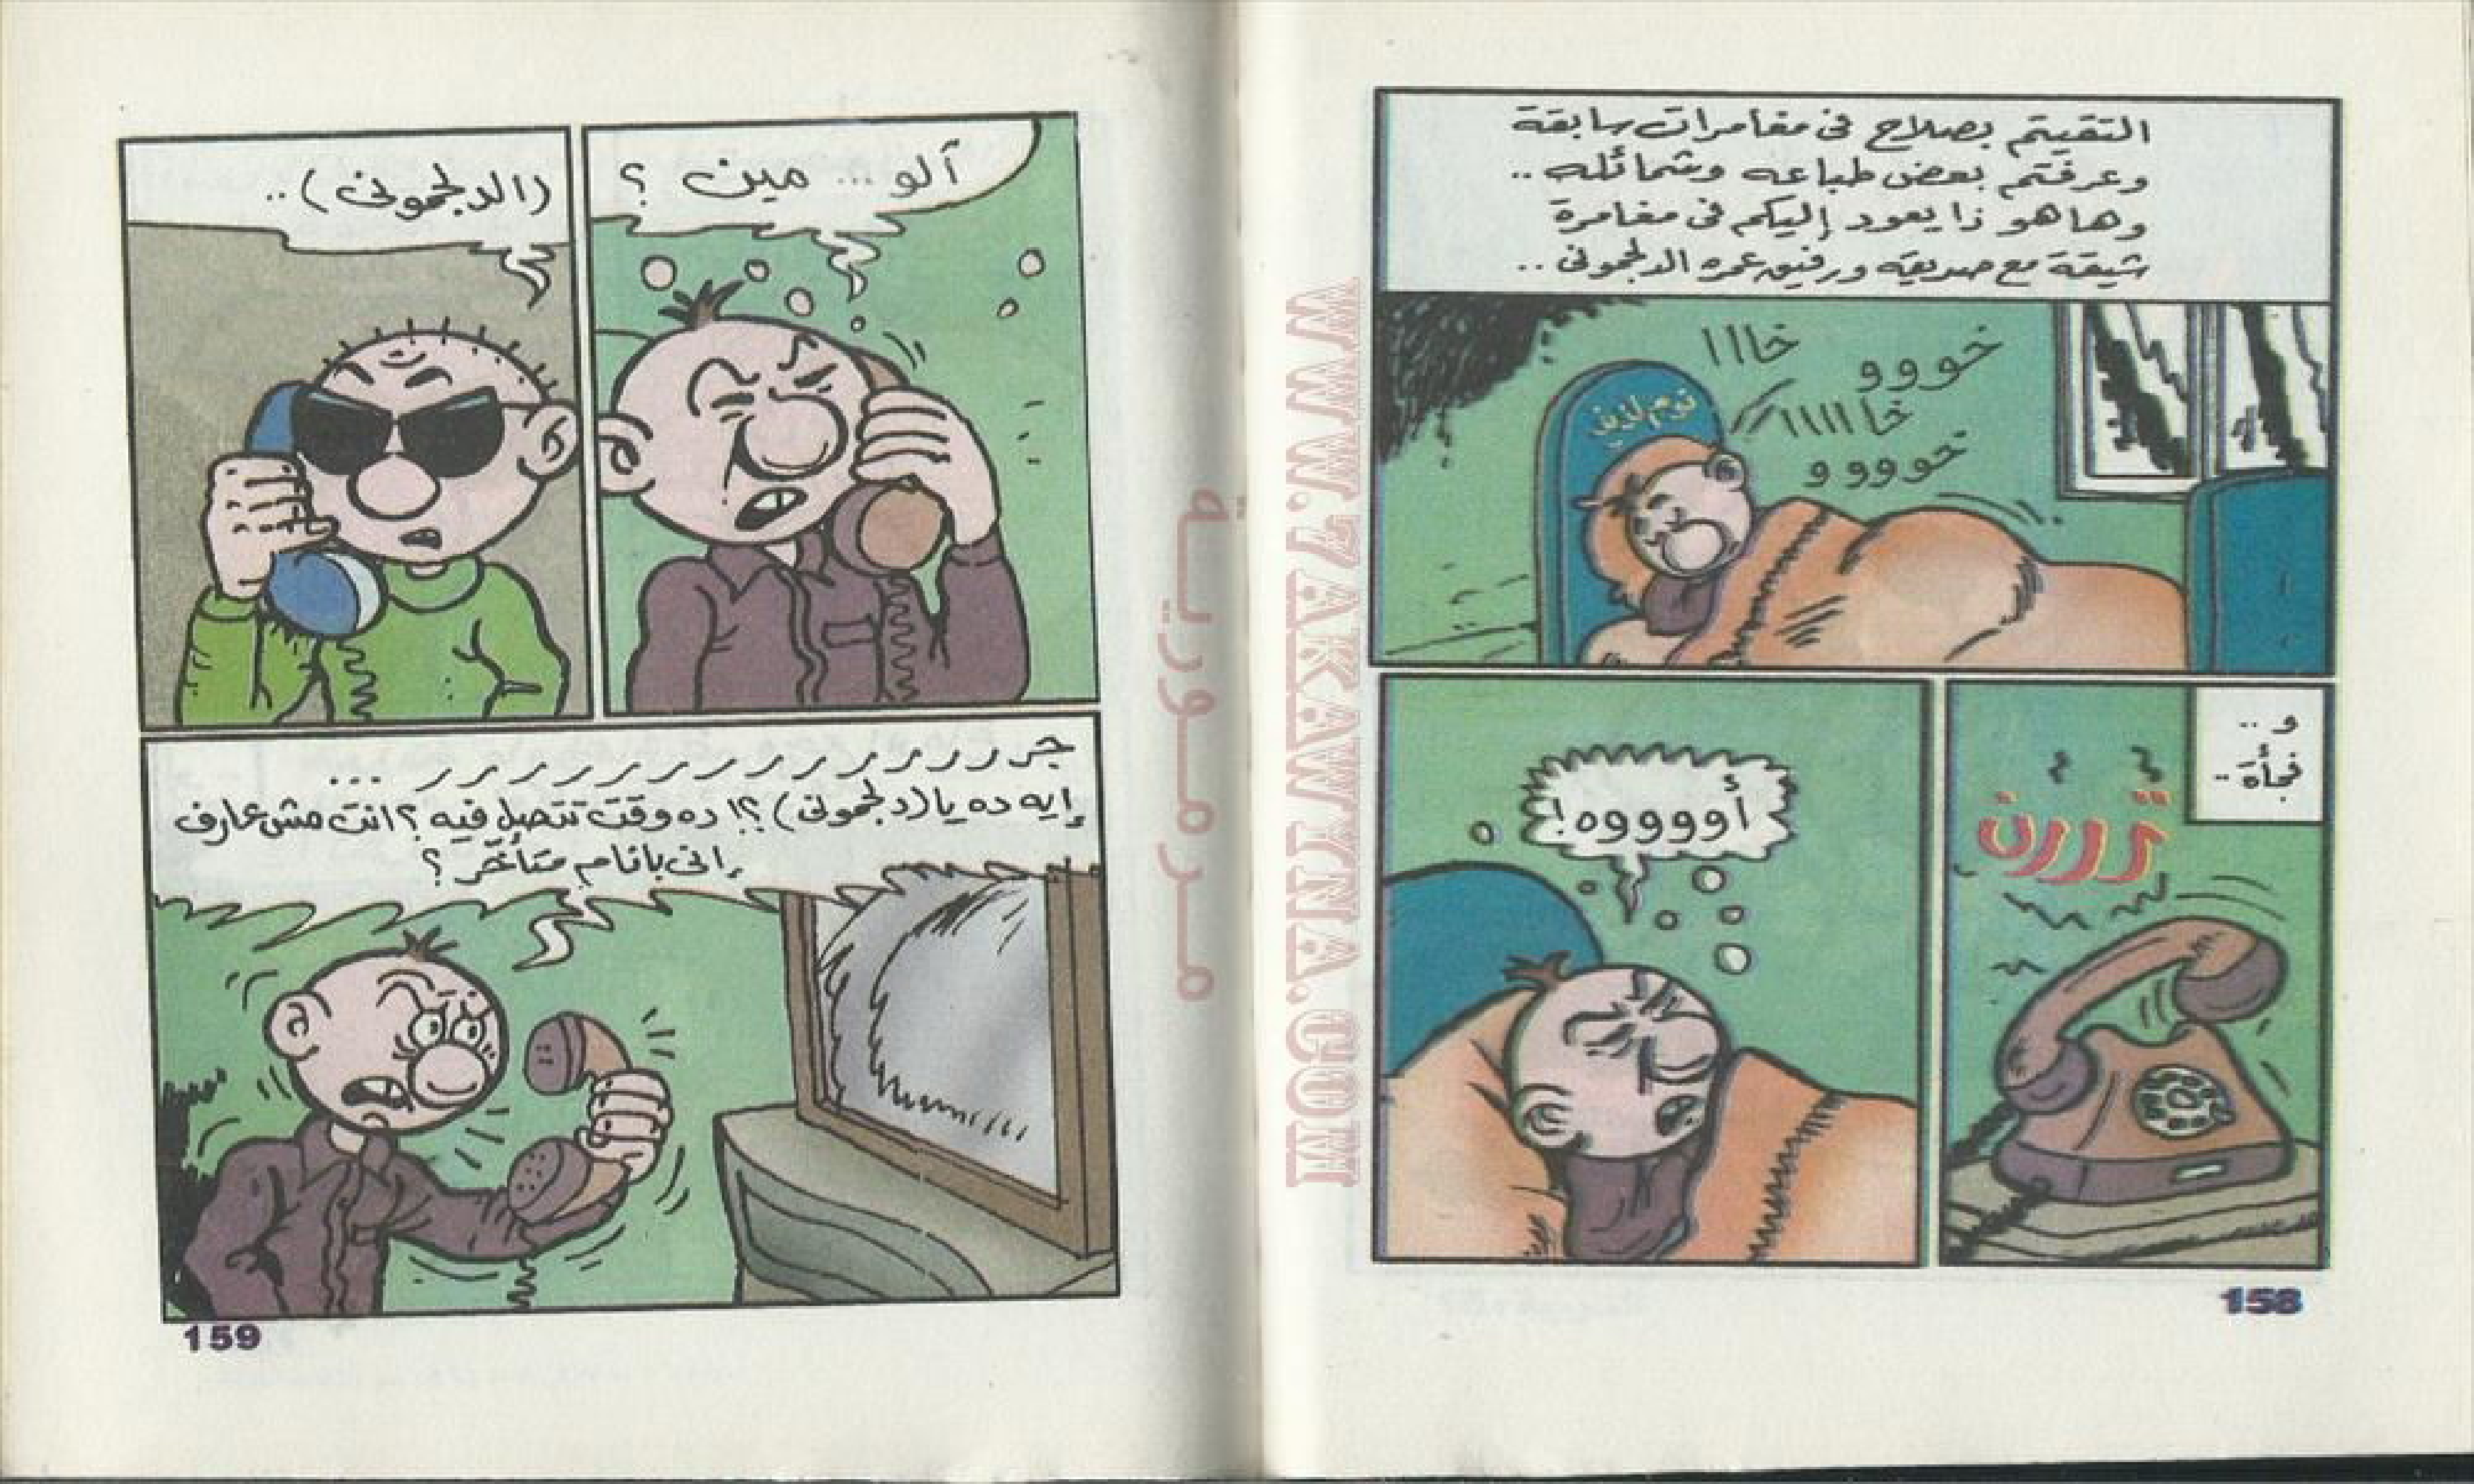 التقيتم بصلاح فى مغامرات سابقة
وعرفتم بعض طباعه وشمائله ..
وها هو ذا يعود إليكم فى مغامرة
شيقة مع صديقه ورفيق عمره الدلجمونى ..
خووو
خااا
خااااا
خوووو
نوم لذيذ
و ..
فجأة -
تررررن
أووووه!
158
آلو ... مين ؟
(الدلجمونى) ..
جرررررررررررررر ...
إيه ده يا (دلجمونى) ؟! ده وقت تتصل فيه ؟ انت مش عارف
إنى بانام متأخر ؟
159
مرمورية
WWW.ZAKAWATNA.COM